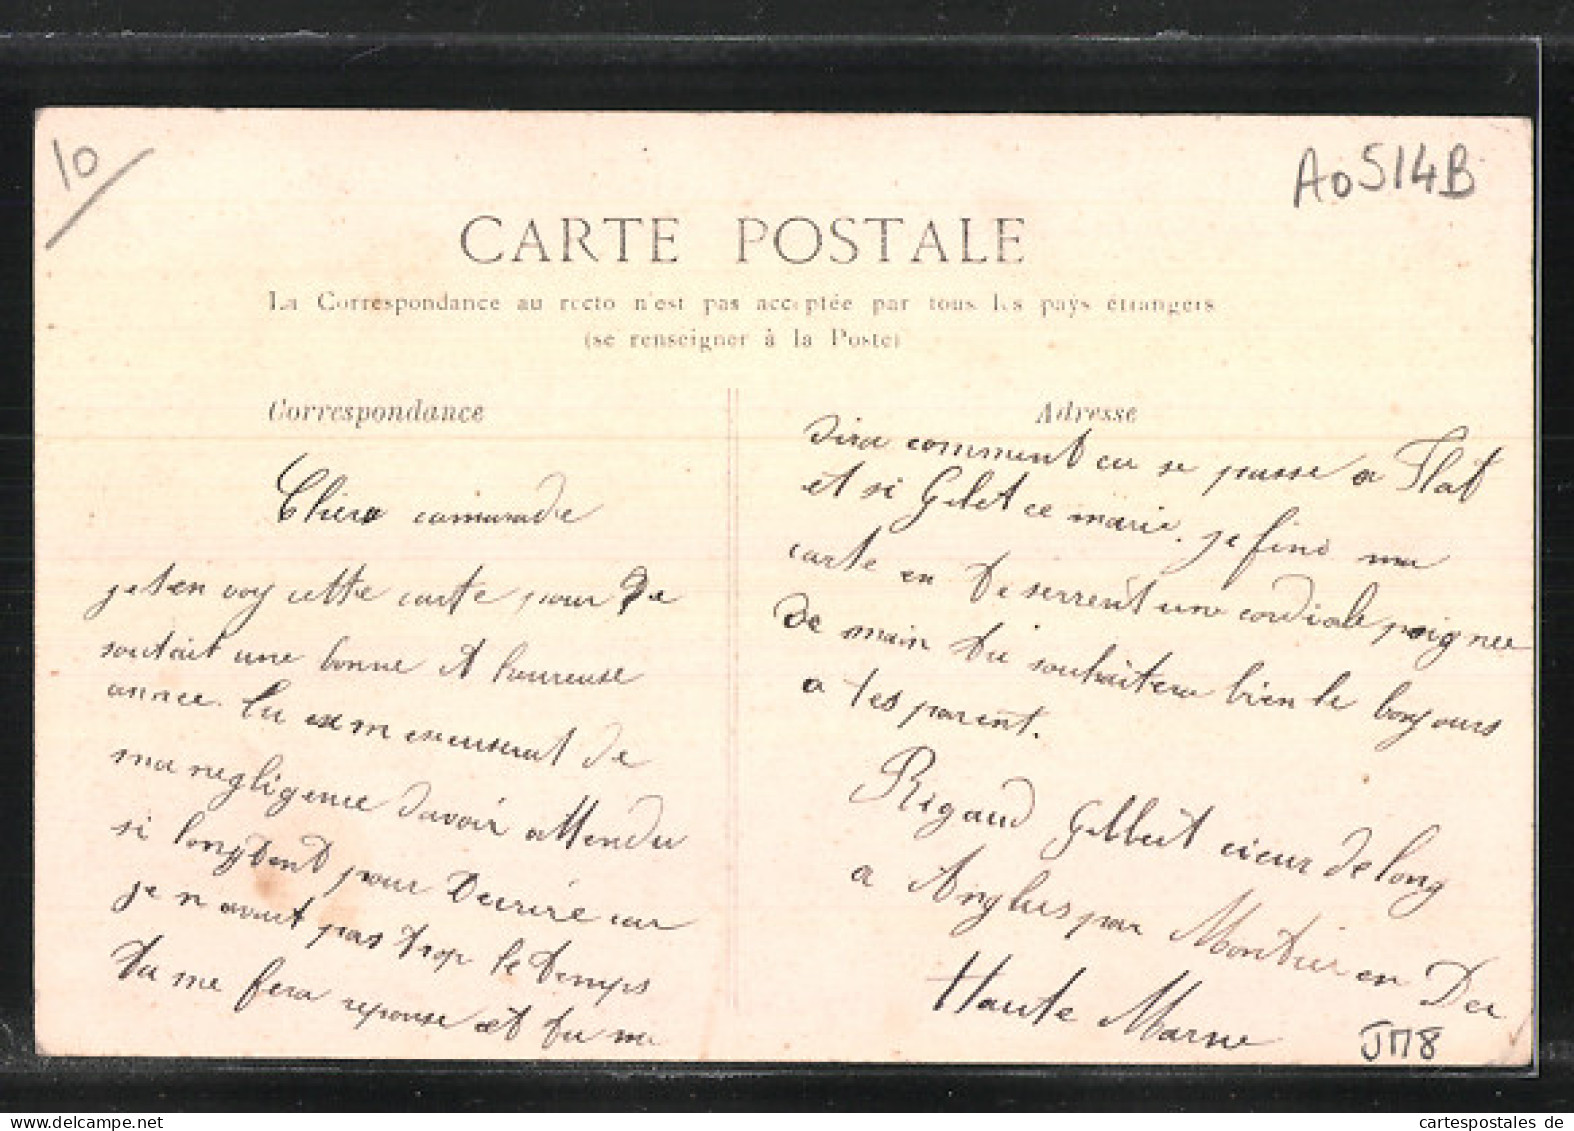 10
A0514B
CARTE POSTALE
La Correspondance au recto n'est pas acceptée par tous les pays étrangers
(se renseigner à la Poste)
Correspondance
Adresse
Cher camarade
je t'en voy cette carte pour te
soutait une bonne et hureuse
annee. tu de
ma negligence davoir attendu
si longtent pour car
je n avait pas trop le temps
tu me fera reponse et tu me
dira comment ca se passe a Flat
et si ce marie. je fini ma
carte en te serrent une cordiale poignee
de main tu souhaitera bien le bonjours
a tes parent.
Rigaud Gilbert cieur de long
a Anglus par Montier en Der
Haute Marne
JM8
cartespostales de
www.delcampe.net